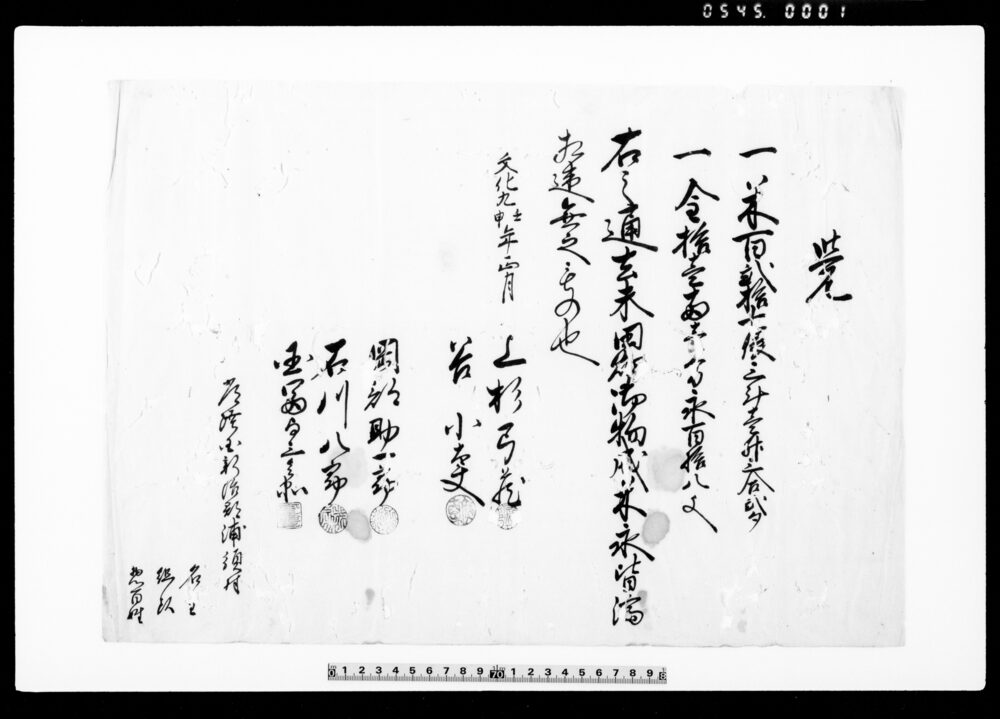 0545. 0001
覚
一 米百弐拾七俵三斗壱升六合弐勺
一 金拾壱両壱分永百拾八文
右之通去未田畑御物成米永皆済
相違無之もの也
文化九壬申年正月
上杉弓蔵
谷 小太夫
岡部助一郎
石川八郎
常陸国新治郡浦須村
名主
組頭
惣百姓
0 1 2 3 4 5 6 7 8 9 10 1 2 3 4 5 6 7 8 9